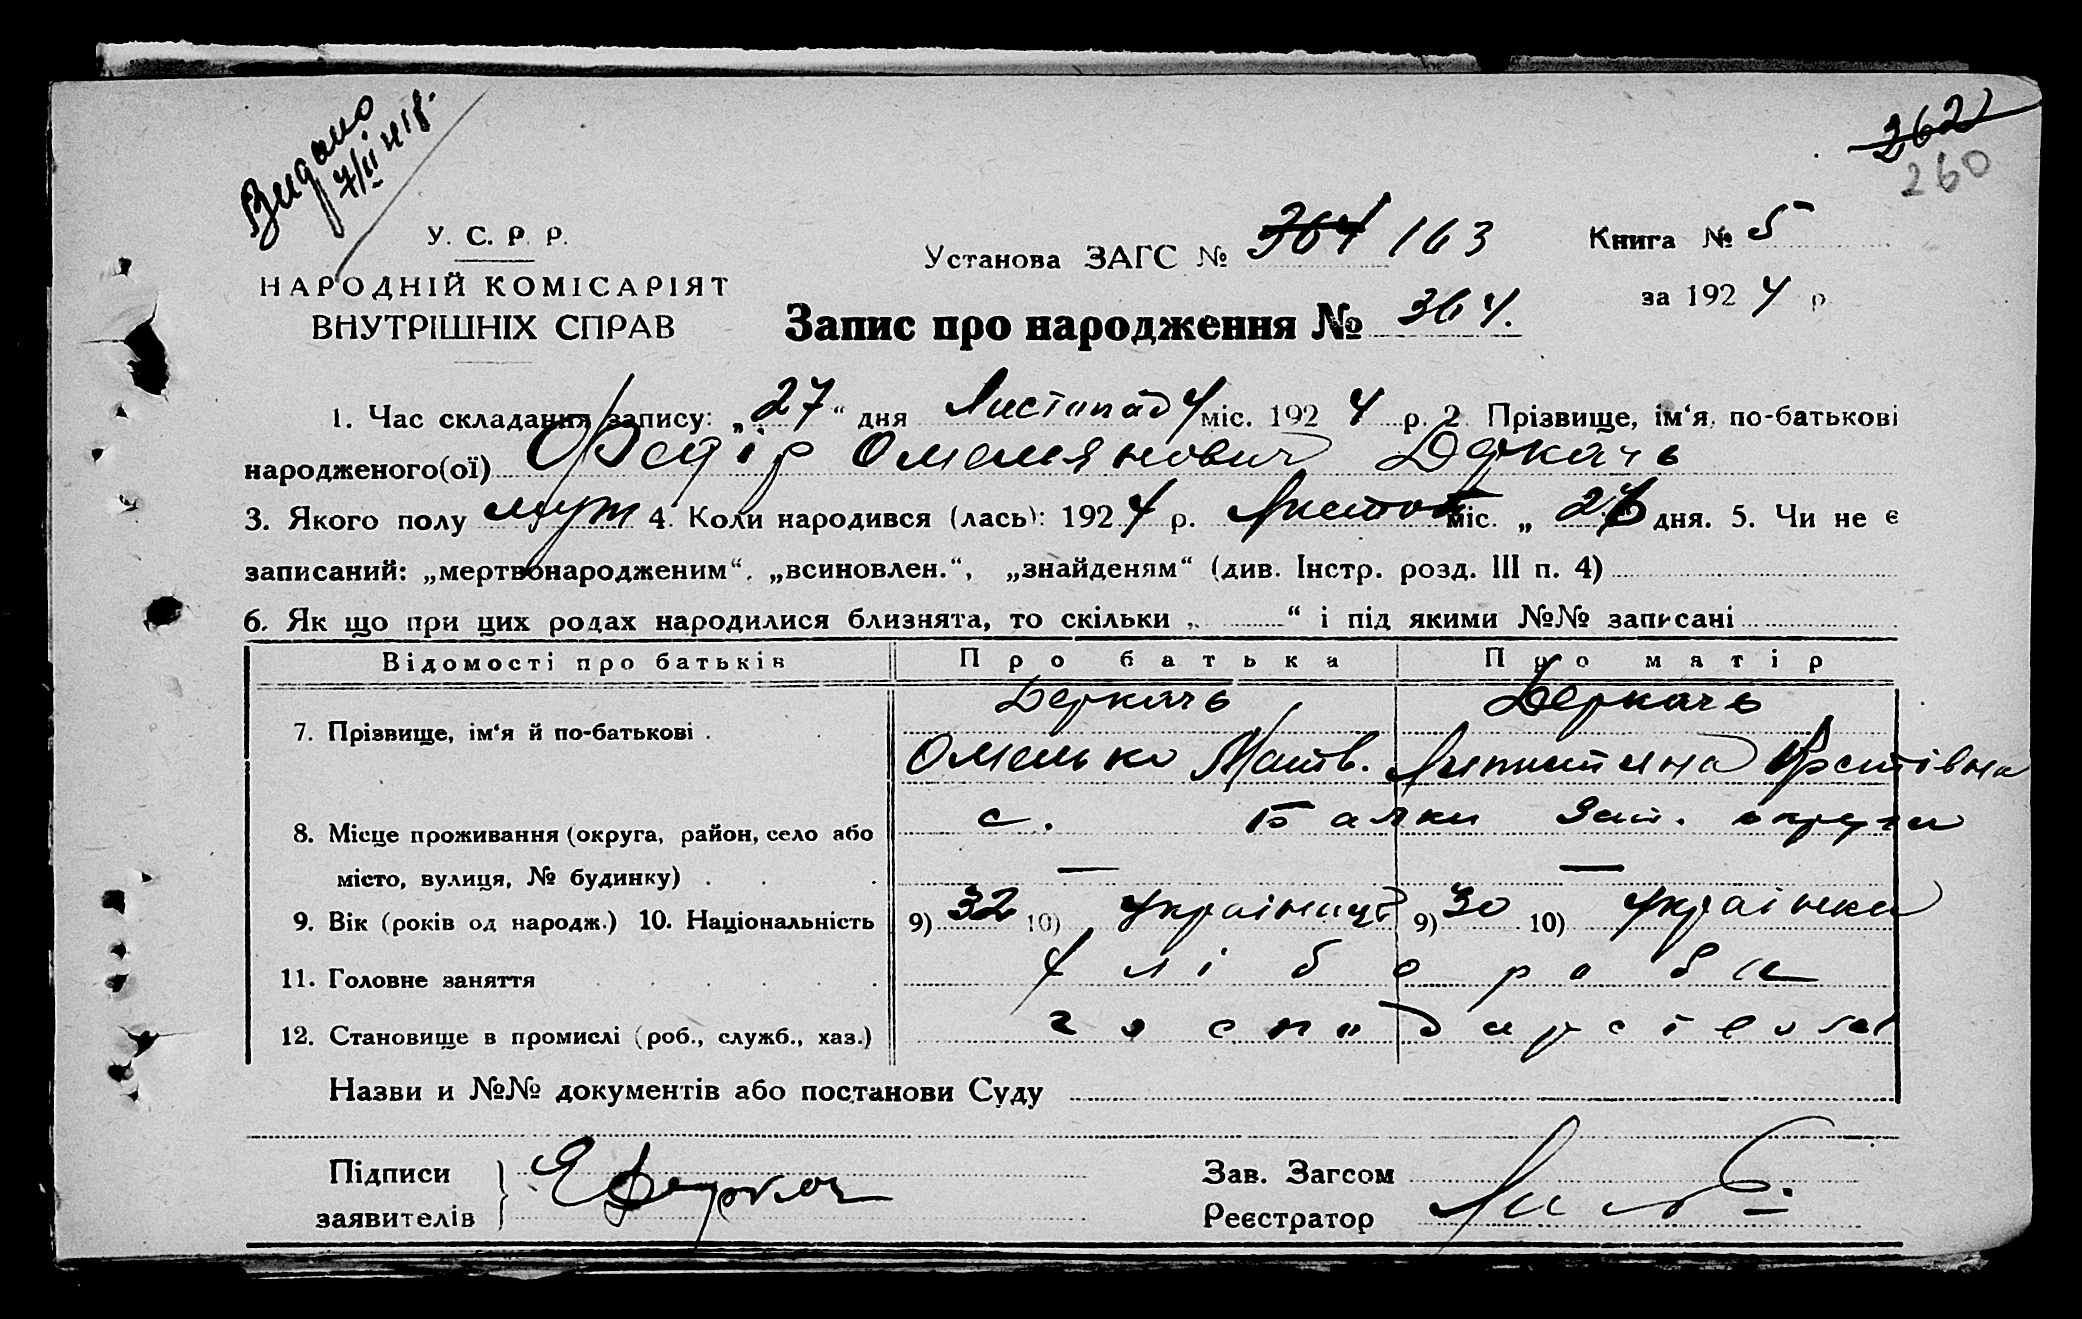 Видано
7/II 41 8.
262
260
У. С. Р. Р.
НАРОДНІЙ КОМІСАРІЯТ
ВНУТРІШНІХ СПРАВ
Установа ЗАГС № 364 163
Книга № 5
за 1924 р.
Запис про народження № 364.
1. Час складання запису: „27“ дня Листопад міс. 1924 р. 2. Прізвище, ім‘я, по-батькові
народженого(ої) Федір Омелянович Деркачь
3. Якого полу муж 4. Коли народився (лась): 1924 р. Листоп міс. „ 26 дня. 5. Чи не є
записаний: „мертвонародженим“, „всиновлен.“, „знайденям“ (див. Інстр. розд. III п. 4)
6. Як що при цих родах народилися близнята, то скільки „ “ і під якими №№ записані
Відомості про батьків Про батька Про матір
Деркачь Деркачь
7. Прізвище, ім‘я й по-батькові .
Омелько Матв.
8. Місце проживання (округа, район, село або с. Балки Зап. округи
місто, вулиця, № будинку) . . . — —
9. Вік (років од народж.) 10. Національність 9) 32 10) Українець 9) 30 10) Українка
11. Головне заняття . . . . . . хлібороби
12. Становище в промислі (роб., служб., хаз.)
Назви и №№ документів або постанови Суду
Підписи
заявителів
Деркач
Зав. Загсом
Реєстратор